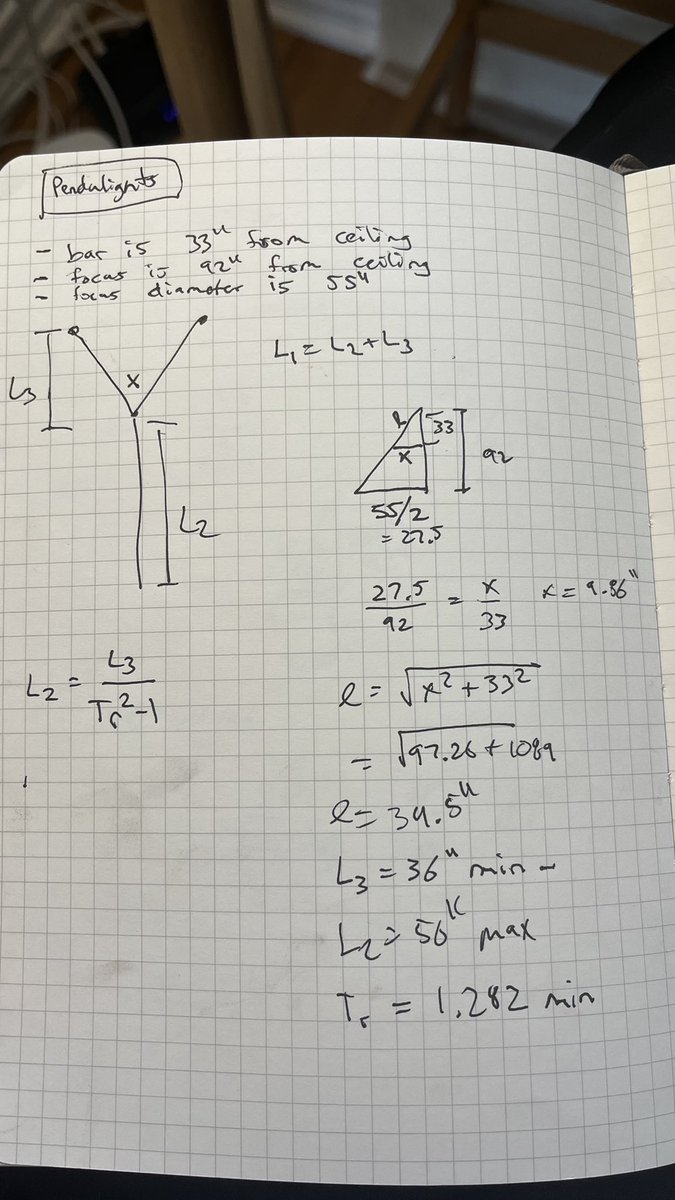 Pendulights
- bar is 33" from ceiling
- focus is 92" from ceiling
- focus diameter is 55"
L₁ = L₂ + L₃
L₃
x
L₂
l
33
x
92
55/2
= 27.5
27.5/92 = x/33 x = 9.86"
L₂ = L₃/(Tᵣ²-1)
l = √(x² + 33²)
= √(97.26 + 1089
l = 34.5"
L₃ = 36" min -
L₂ = 56" max
Tᵣ = 1.282 min